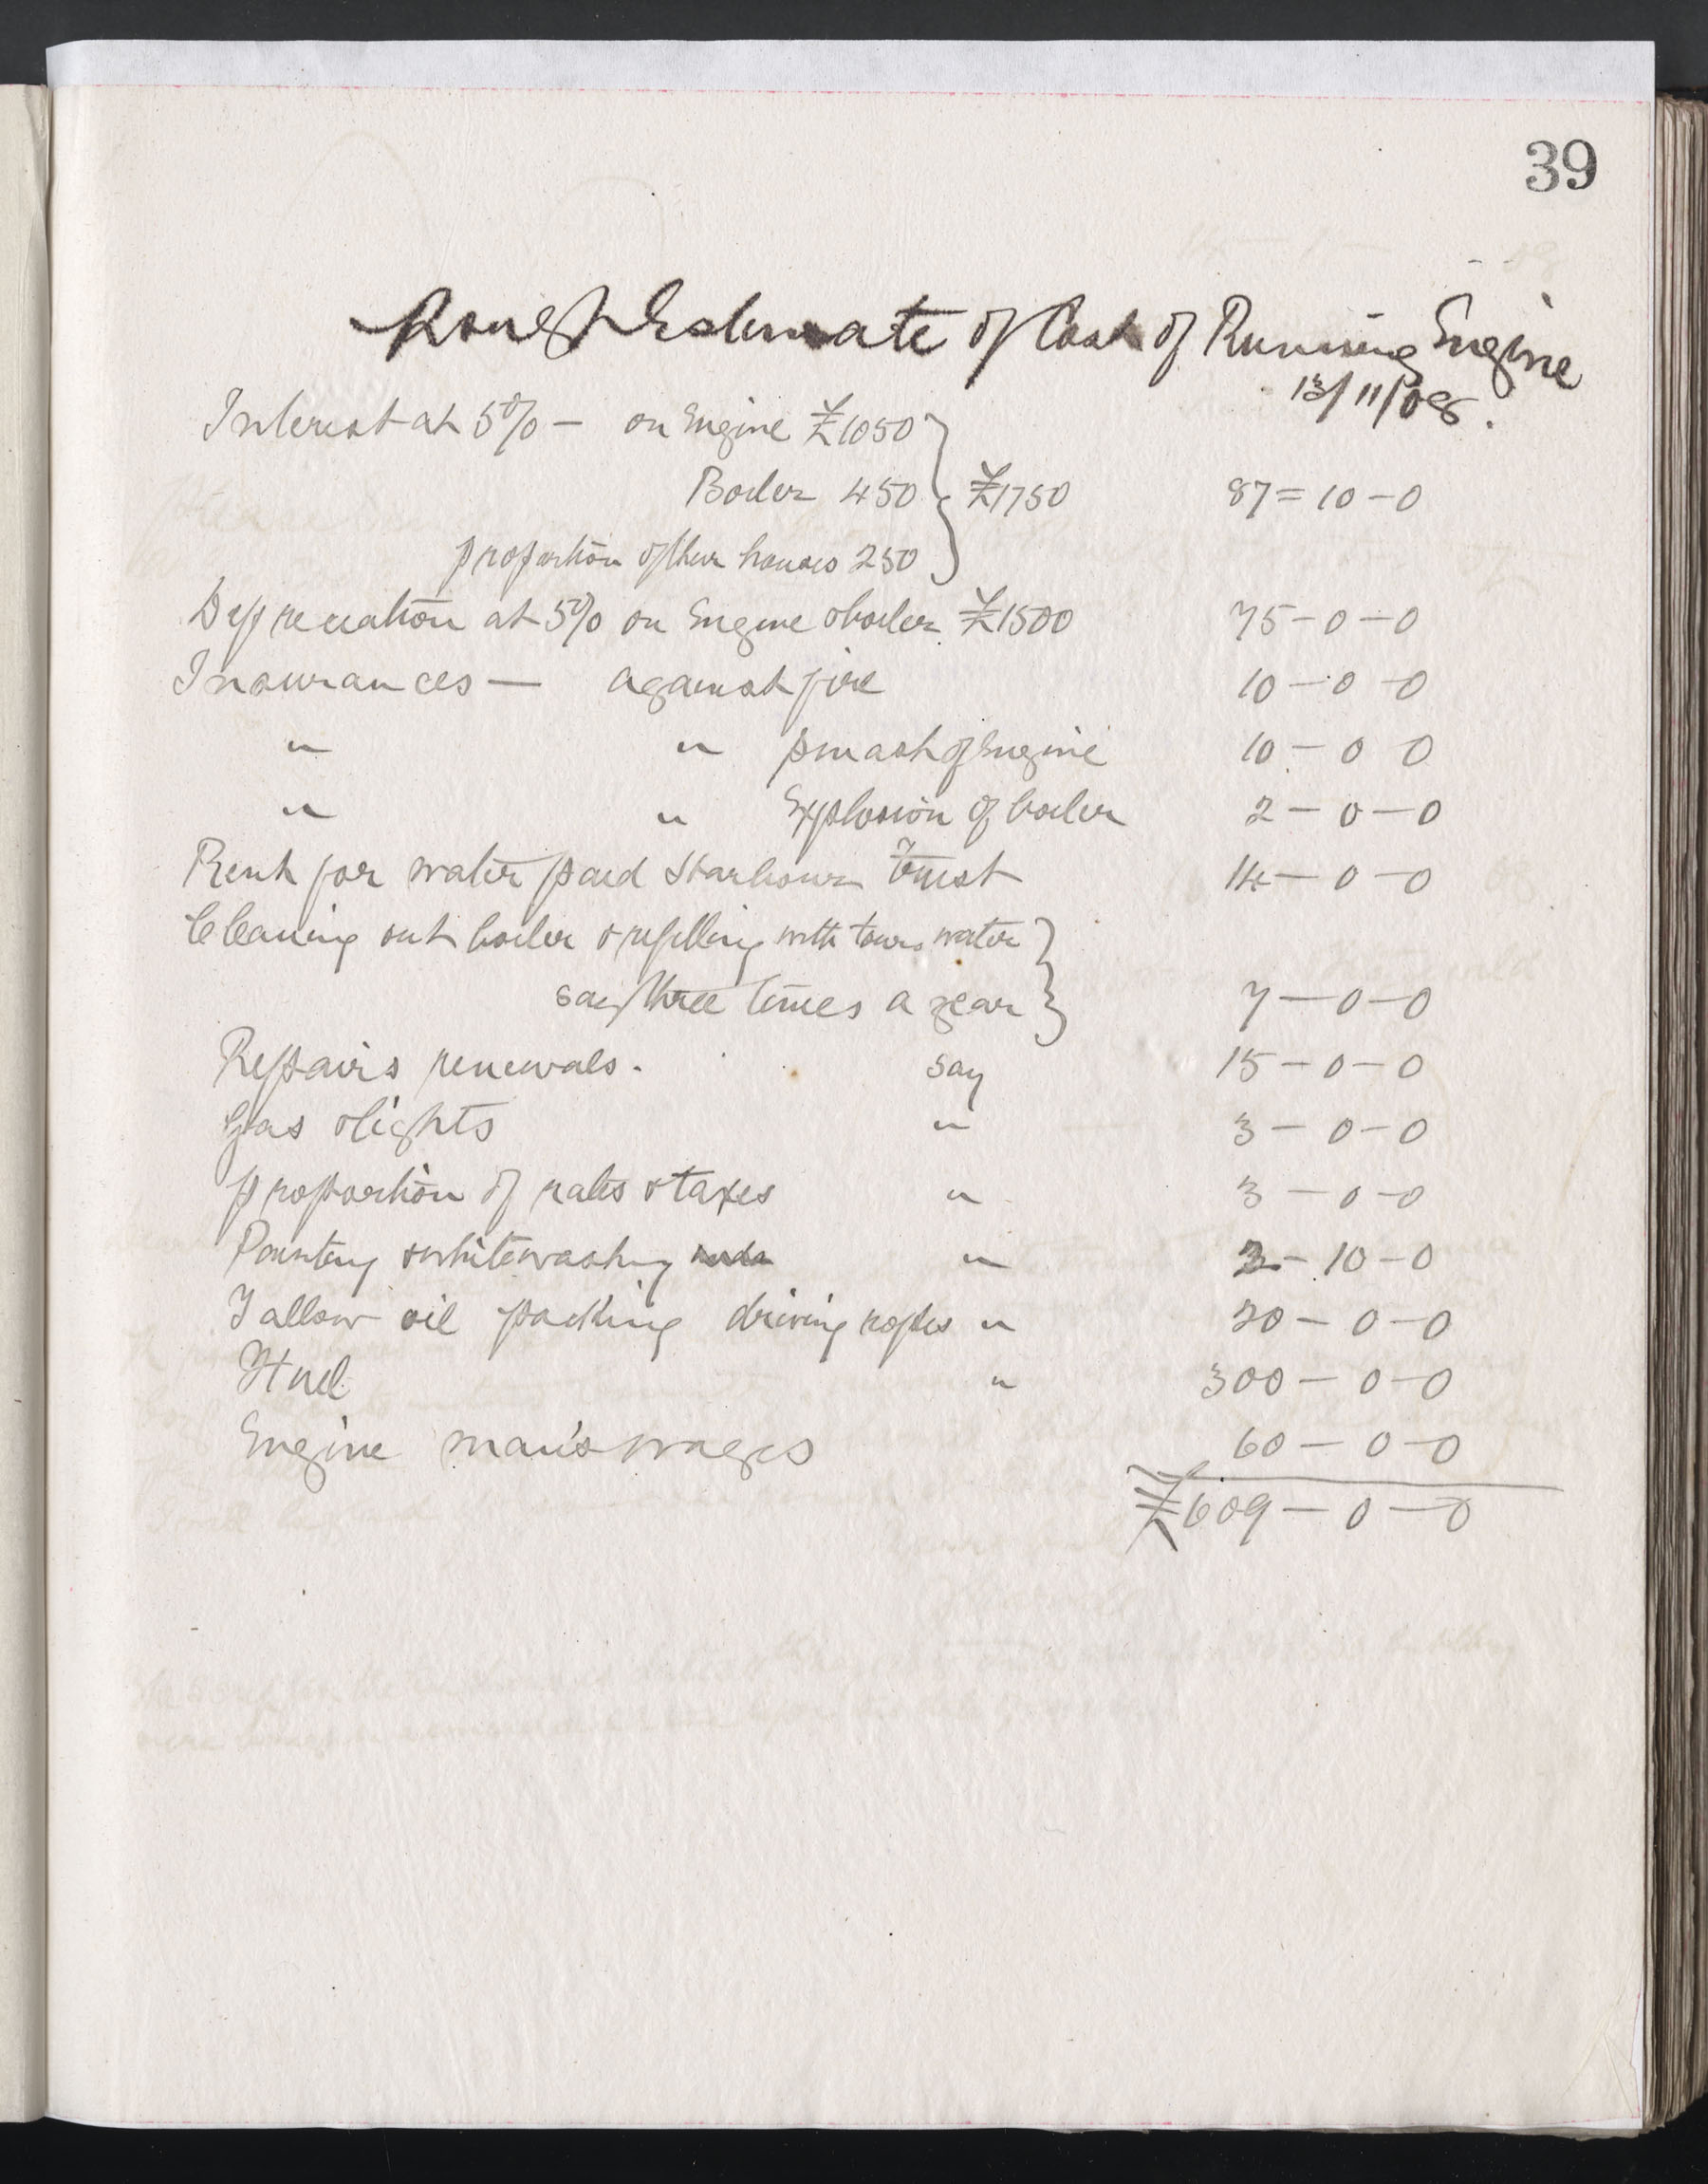 39
Rough Estimate of Cost of Running Engine
13/11/08.
Interest at 5% — on Engine £1050
Boiler 450 £1750 87 = 10 - 0
proportion other houses 250
Depreciation at 5% on Engine & boiler £1500 75 - 0 - 0
Insurances — against fire 10 - 0 - 0
" " smash of Engine 10 - 0 0
" " Explosion of boiler 2 - 0 - 0
Rent for water paid Harbour Trust 14 - 0 - 0
Cleaning out boiler & refilling with town water
say three times a year 7 - 0 - 0
Repairs renewals. say 15 - 0 - 0
Gas & lights " 3 - 0 - 0
proportion of rates & taxes " 3 - 0 - 0
Painting & whitewashing " 2 - 10 - 0
Tallow oil packing driving ropes " 20 - 0 - 0
Fuel " 300 - 0 - 0
Engine man's wages 60 - 0 - 0
£609 - 0 - 0